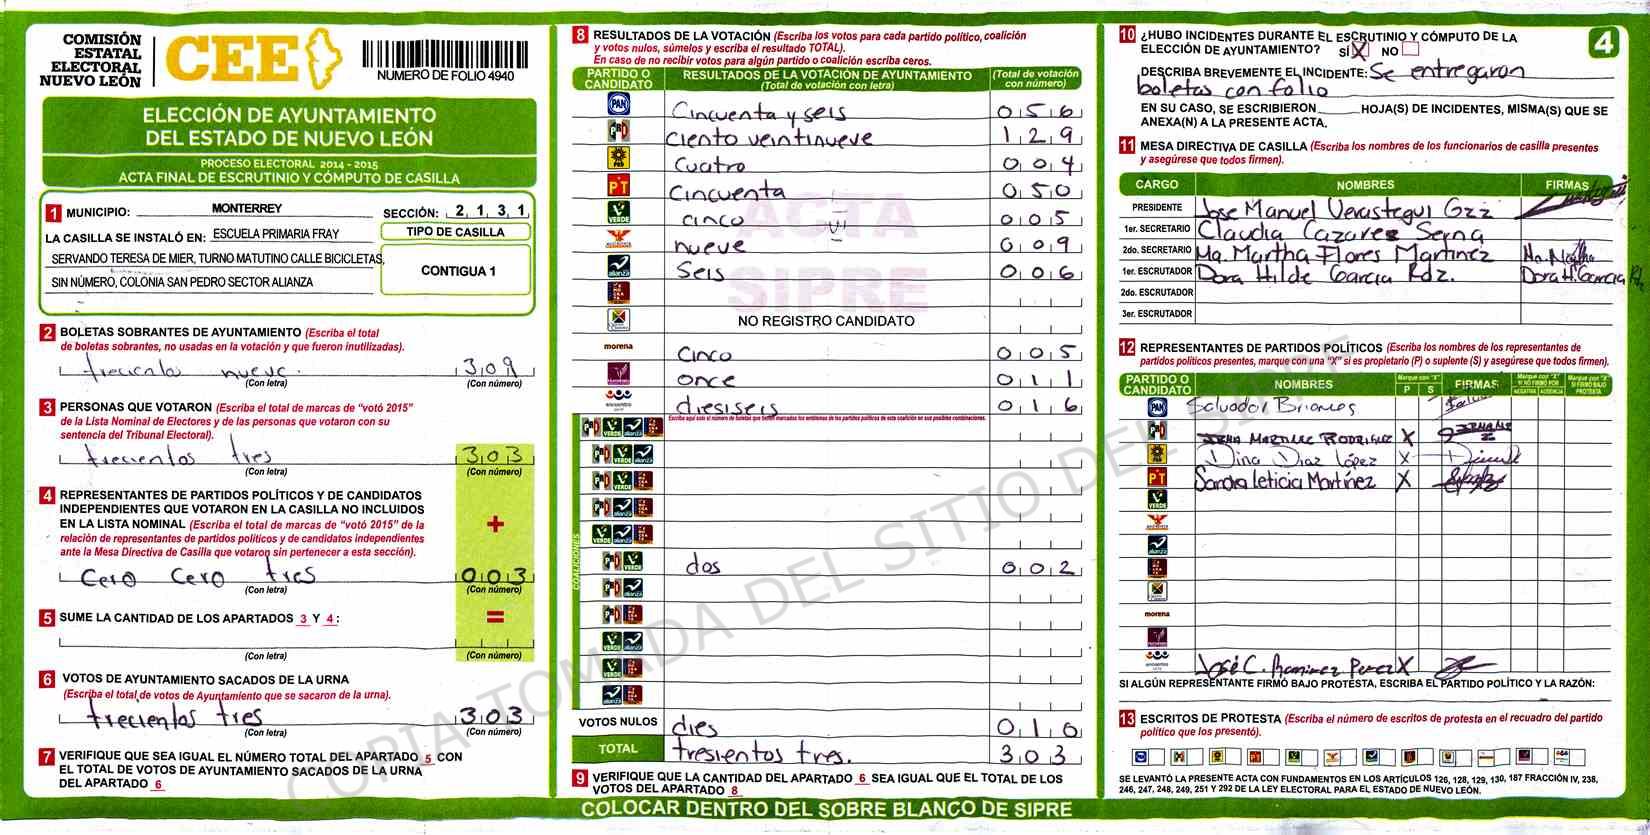 COMISIÓN
ESTATAL
ELECTORAL
NUEVO LEÓN
CEE
NUMERO DE FOLIO 4940
ELECCIÓN DE AYUNTAMIENTO
DEL ESTADO DE NUEVO LEÓN
PROCESO ELECTORAL 2014 - 2015
ACTA FINAL DE ESCRUTINIO Y CÓMPUTO DE CASILLA
1 MUNICIPIO: MONTERREY SECCIÓN: 2 1 3 1
LA CASILLA SE INSTALÓ EN: ESCUELA PRIMARIA FRAY
SERVANDO TERESA DE MIER, TURNO MATUTINO CALLE BICICLETAS,
SIN NÚMERO, COLONIA SAN PEDRO SECTOR ALIANZA
TIPO DE CASILLA
CONTIGUA 1
2 BOLETAS SOBRANTES DE AYUNTAMIENTO (Escriba el total
de boletas sobrantes, no usadas en la votación y que fueron inutilizadas).
trecientos nueve 309
(Con letra) (Con número)
3 PERSONAS QUE VOTARON (Escriba el total de marcas de "votó 2015"
de la Lista Nominal de Electores y de las personas que votaron con su
sentencia del Tribunal Electoral).
trecientos tres 303
(Con letra) (Con número)
4 REPRESENTANTES DE PARTIDOS POLÍTICOS Y DE CANDIDATOS
INDEPENDIENTES QUE VOTARON EN LA CASILLA NO INCLUIDOS
EN LA LISTA NOMINAL (Escriba el total de marcas de "votó 2015" de la
relación de representantes de partidos políticos y de candidatos independientes
ante la Mesa Directiva de Casilla que votaron sin pertenecer a esta sección).
+
Cero Cero tres 003
(Con letra) (Con número)
5 SUME LA CANTIDAD DE LOS APARTADOS 3 Y 4:
=
(Con letra) (Con número)
6 VOTOS DE AYUNTAMIENTO SACADOS DE LA URNA
(Escriba el total de votos de Ayuntamiento que se sacaron de la urna).
trecientos tres 303
(Con letra) (Con número)
7 VERIFIQUE QUE SEA IGUAL EL NÚMERO TOTAL DEL APARTADO 5 CON
EL TOTAL DE VOTOS DE AYUNTAMIENTO SACADOS DE LA URNA
DEL APARTADO 6
8 RESULTADOS DE LA VOTACIÓN (Escriba los votos para cada partido político, coalición
y votos nulos, súmelos y escriba el resultado TOTAL).
En caso de no recibir votos para algún partido o coalición escriba ceros.
PARTIDO O
CANDIDATO
RESULTADOS DE LA VOTACIÓN DE AYUNTAMIENTO
(Total de votación con letra)
(Total de votación
con número)
PAN Cincuenta y seis 056
PRI ciento veintinueve 129
PRD cuatro 004
PT cincuenta 050
VERDE cinco 005
nueve 009
alianza Seis 006
NO REGISTRO CANDIDATO
morena cinco 005
once 011
encuentro diesiseis 016
Escriba aquí solo el número de boletas que tienen marcados los emblemas de los partidos políticos de esta coalición en sus posibles combinaciones.
COALICIONES
dos 002
VOTOS NULOS dies 010
TOTAL tresientos tres. 303
9 VERIFIQUE QUE LA CANTIDAD DEL APARTADO 6 SEA IGUAL QUE EL TOTAL DE LOS
VOTOS DEL APARTADO 8
ACTA
SIPRE
COLOCAR DENTRO DEL SOBRE BLANCO DE SIPRE
COPIA TOMADA DEL SITIO DEL SIPRE
4
10 ¿HUBO INCIDENTES DURANTE EL ESCRUTINIO Y CÓMPUTO DE LA
ELECCIÓN DE AYUNTAMIENTO? SÍ X NO
DESCRIBA BREVEMENTE EL INCIDENTE: Se entregaron
boletas con folio
EN SU CASO, SE ESCRIBIERON HOJA(S) DE INCIDENTES, MISMA(S) QUE SE
ANEXA(N) A LA PRESENTE ACTA.
11 MESA DIRECTIVA DE CASILLA (Escriba los nombres de los funcionarios de casilla presentes
y asegúrese que todos firmen).
CARGO NOMBRES FIRMAS
PRESIDENTE Jose Manuel Verastegui Gzz
1er. SECRETARIO Claudia Cazares Serna
2do. SECRETARIO Ma. Martha Flores Martinez
1er. ESCRUTADOR Dora Hilde Garcia Rdz. Dora H. Garcia
2do. ESCRUTADOR
3er. ESCRUTADOR
12 REPRESENTANTES DE PARTIDOS POLÍTICOS (Escriba los nombres de los representantes de
partidos políticos presentes, marque con una "X" si es propietario (P) o suplente (S) y asegúrese que todos firmen).
PARTIDO O
CANDIDATO
NOMBRES
Marque con "X"
P S
FIRMAS
Marque con "X"
SI NO FIRMÓ POR
NEGATIVA AUSENCIA
Marque con "X"
SI FIRMÓ BAJO
PROTESTA
PAN Salvador Briones
PRI MARTINEZ RODRIGUEZ X
PRD Dina Diaz López X
PT Sandra Leticia Martínez X
VERDE
alianza
morena
encuentro José C. Ramirez Perez X
SI ALGÚN REPRESENTANTE FIRMÓ BAJO PROTESTA, ESCRIBA EL PARTIDO POLÍTICO Y LA RAZÓN:
13 ESCRITOS DE PROTESTA (Escriba el número de escritos de protesta en el recuadro del partido
político que los presentó).
SE LEVANTÓ LA PRESENTE ACTA CON FUNDAMENTOS EN LOS ARTÍCULOS 126, 128, 129, 130, 187 FRACCIÓN IV, 238,
246, 247, 248, 249, 251 Y 292 DE LA LEY ELECTORAL PARA EL ESTADO DE NUEVO LEÓN.